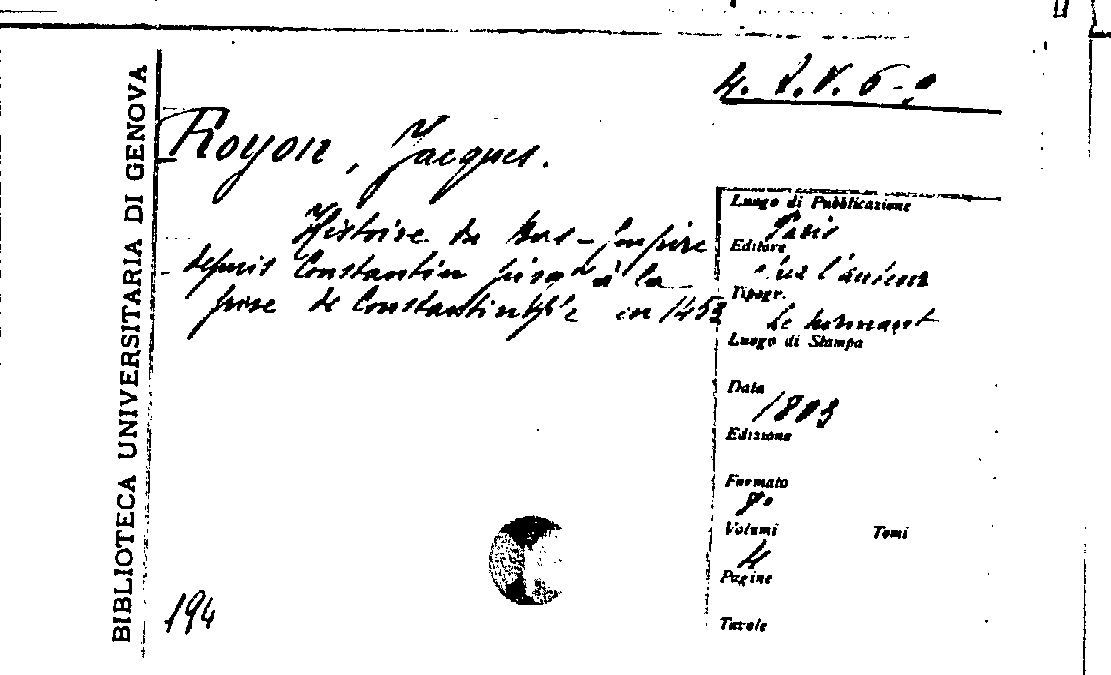 BIBLIOTECA UNIVERSITARIA DI GENOVA
Royou, Jacques.
Histoire du Bas-Empire
depuis Constantin jusqu'à la
prise de Constantinople en 1453
Luogo di Pubblicazione
Paris
Editore
l'auteur
Tipogr.
Le Normant
Luogo di Stampa
Data
1803
Edizione
Formato
8°
Volumi Tomi
4
Pagine
Tavole
194